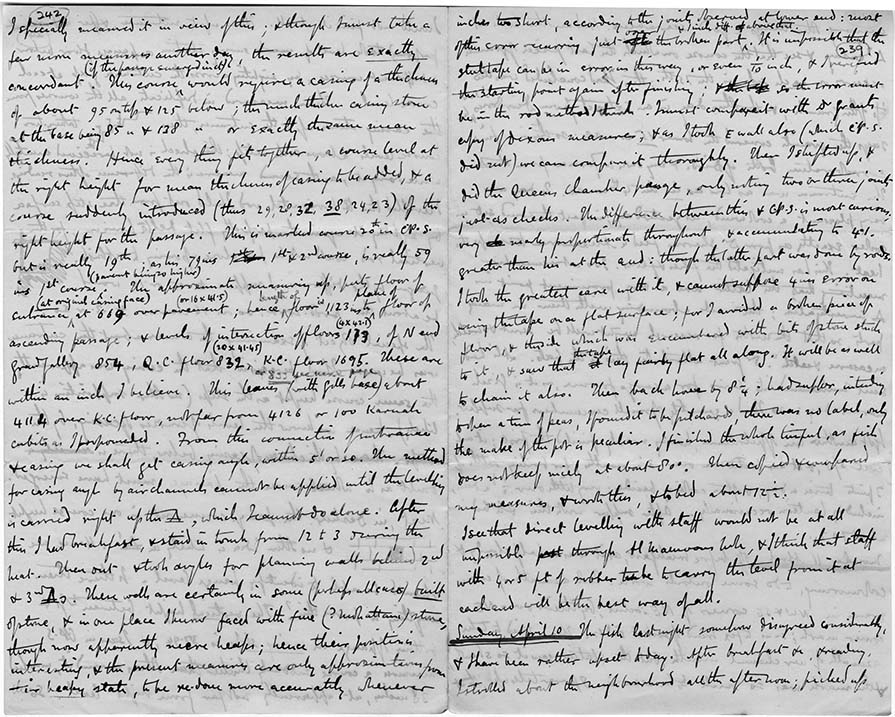 242
I specially measured it in view of this; & though I must take a
few more measures another day, the results are exactly
concordant. (if the passage emerged in it) This course would require a casing of a thickness
of about 95 at top & 125 below; the much thicker casing stone
at the base being 85 " & 138 " or exactly the same mean
thickness. Hence every thing fits together, a course level at
the right height for mean thickness of casing to be added, & a
course suddenly introduced (thus 29, 28, 32, 38, 24, 23) of the
right height for the passage. This is marked course 20th in C.P.S.
but is really 19th, as his 79 ins 1st & 2nd course, is really 59
ins 1st course. (pavement being 20 higher) The approximate measuring up, puts floor of
entrance (at original casing face) at 669 over pavement; (or 16 x 41.5) hence, length of floor is 1123 ins, place of floor of
ascending passage; & levels of intersection of floors 173, (4 x 43.1) of N end
grand gallery 854, Q.C. floor 832, (20 x 41.45) K.C. floor 1695. These are
within an inch I believe. This leaves (with Gill's base) about
4114 over K.C. floor, not far from 4126 or 100 Karnak
cubits as I propounded. From this connection of entrance
& casing we shall get casing angle, within 5' or so. The method
for casing angle by air channels cannot be applied until the levelling
is carried right up the Δ, which I cannot do alone. After
this I had breakfast, & staid in tomb from 12 to 3 during the
heat. Then out & took angles for planning walls behind 2nd
& 3rd Δs. These walls are certainly in some (perhaps all cases) built
of stone, & in one place I know faced with fine (? Mokattam) stone,
though now apparently mere heaps; hence their position is
interesting, & the present measures are only approximations from
their heapy state, to be re-done more accurately whenever
239
inches too short, according to the joint observed at lower end: most
of this error occurring just the broken part. It is impossible that the
steel tape can be in error in this way, or even 1/10 inch, & I verified
the starting point again after finishing; so the error must
be in the rod method I think. I must compare it with Dr Grant's
copy of Dixon's measures; & as I took E wall also (which C.P.S.
did not) we can compare it thoroughly. Then I shifted up, &
did the Queen's Chamber passage, only noting two or three joints
just as checks. The difference between this & C.P.S. is most curious,
very nearly proportionate throughout & accumulating to 4.1.
greater than his at the end: though the latter part was done by rods.
I took the greatest care with it, & cannot suppose 4 ins error on
using the tape on a flat surface; for I avoided a broken piece of
floor, & the side which was encumbered with bits of stone stuck
to it, & saw that the tape lay fairly flat all along. It will be as well
to chain it also. Then back home by 8 1/4: had supper, intending
to open a tin of peas, I found it to be pilchards there was no label, only
the make of the pot is peculiar. I finished the whole tinful, as fish
does not keep nicely at about 80º. Then copied & compared
my measures, & wrote this, & to bed about 12 1/2.
I see that direct levelling with staff would not be at all
impossible through Al Mamoun's hole, & I think that staff
with 4 or 5 ft of rubber tube to carry the level from it at
each end will be the best way of all.
Sunday, April 10 The fish last night somehow disagreed considerably,
& I have been rather upset to day. After breakfast &c & reading,
I strolled about the neighbourhood all the afternoon; picked up